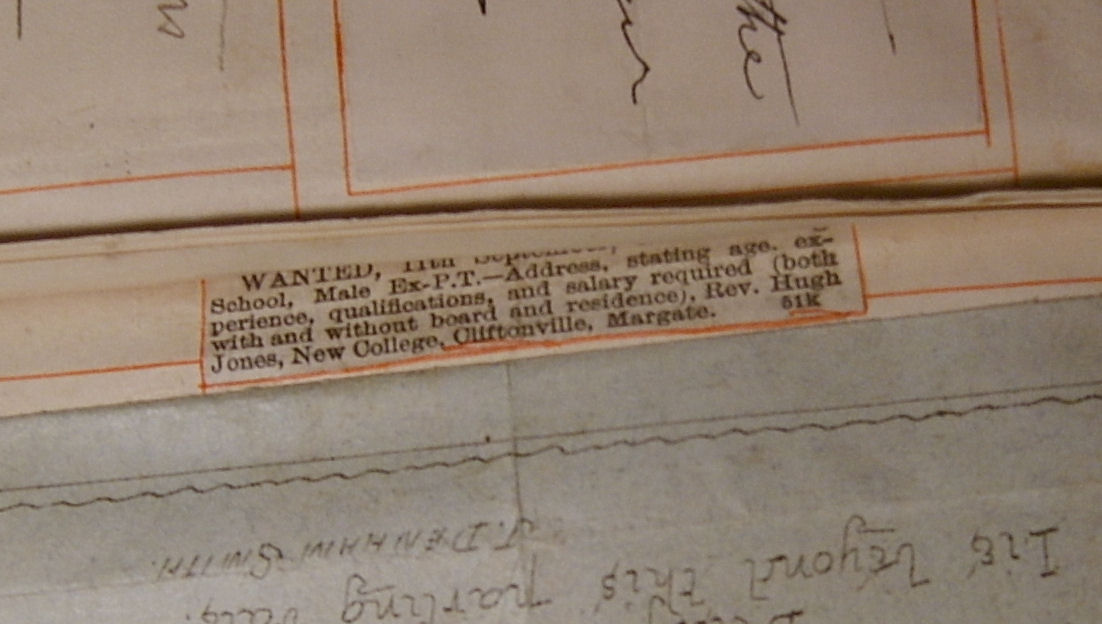 the
WANTED, 11th September,
School, Male Ex-P.T.—Address, stating age, ex-
perience, qualifications, and salary required (both
with and without board and residence), Rev. Hugh
Jones, New College, Cliftonville, Margate. 51k
Lie beyond this parting
J. DENHAM SMITH.